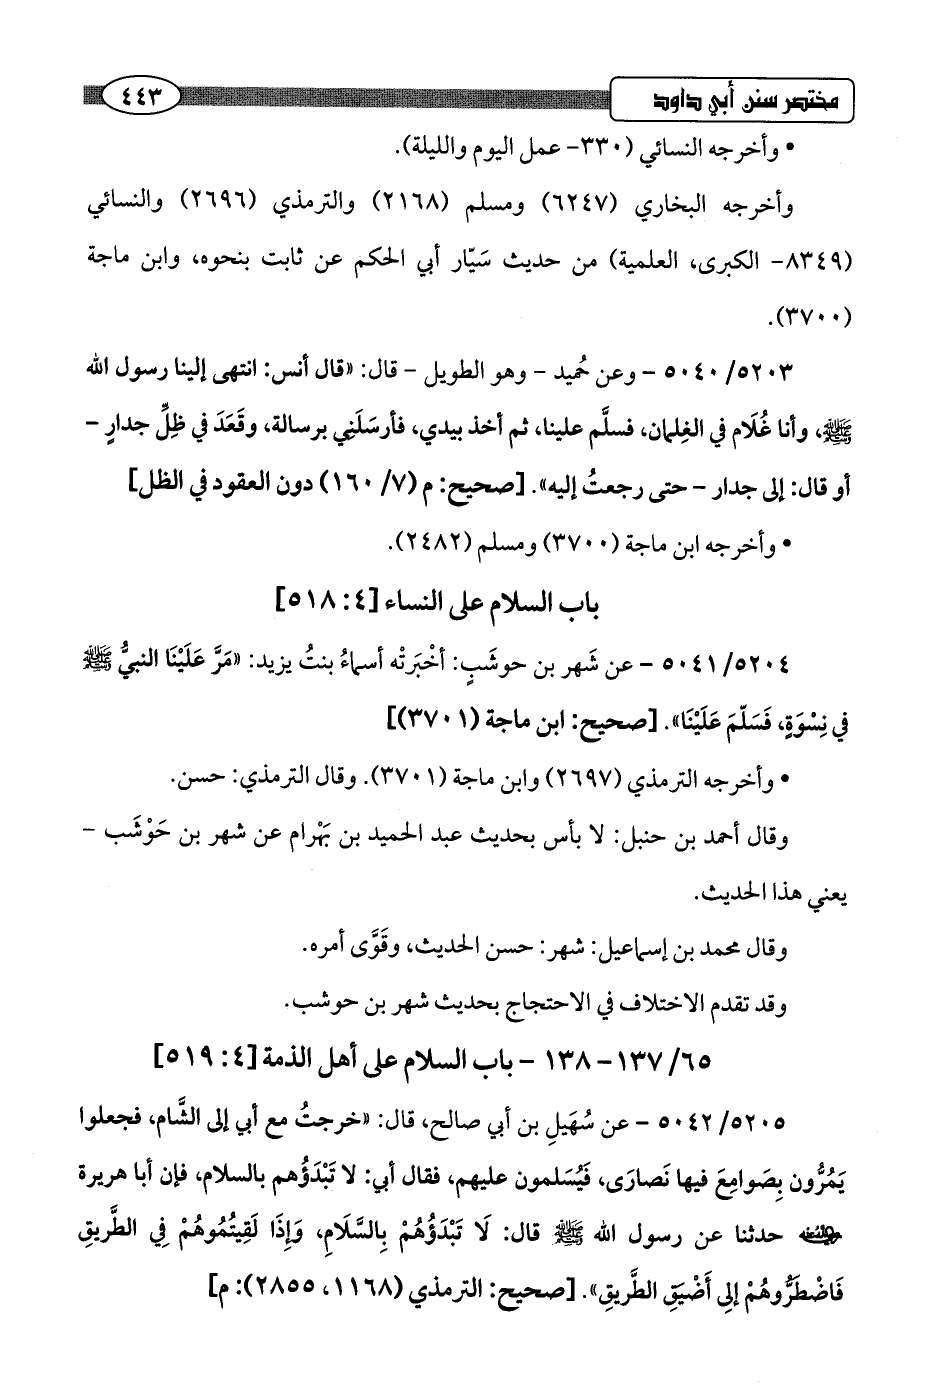 مختصر سنن أبي داود
٤٤٣
• وأخرجه النسائي (٣٣٠- عمل اليوم والليلة).
وأخرجه البخاري (٦٢٤٧) ومسلم (٢١٦٨) والترمذي (٢٦٩٦) والنسائي
(٨٣٤٩- الكبرى، العلمية) من حديث سَيّار أبي الحكم عن ثابت بنحوه، وابن ماجة
(٣٧٠٠).
٥٠٤٠/٥٢٠٣ - وعن حُميد - وهو الطويل - قال: «قال أنس: انتهى إلينا رسول الله
ﷺ، وأنا غُلَام في الغِلمان، فسلَّم علينا، ثم أخذ بيدي، فأرسَلَنِي برسالة، وقَعَدَ في ظِلِّ جدارٍ -
أو قال: إلى جدار - حتى رجعتُ إليه». [صحيح: م (٧/ ١٦٠) دون العقود في الظل]
• وأخرجه ابن ماجة (٣٧٠٠) ومسلم (٢٤٨٢).
باب السلام على النساء [٤: ٥١٨]
٥٠٤١/٥٢٠٤ - عن شَهر بن حوشَبٍ: أخْبَرتْه أسماءُ بنتُ يزيد: «مَرَّ عَلَيْنَا النبيُّ ﷺ
في نِسْوَةٍ، فَسَلَّمَ عَلَيْنَا». [صحيح: ابن ماجة (٣٧٠١)]
• وأخرجه الترمذي (٢٦٩٧) وابن ماجة (٣٧٠١). وقال الترمذي: حسن.
وقال أحمد بن حنبل: لا بأس بحديث عبد الحميد بن بَهْرام عن شهر بن حَوْشَب -
يعني هذا الحديث.
وقال محمد بن إسماعيل: شهر: حسن الحديث، وقَوَّى أمره.
وقد تقدم الاختلاف في الاحتجاج بحديث شهر بن حوشب.
٦٥/ ١٣٧- ١٣٨ - باب السلام على أهل الذمة [٤: ٥١٩]
٥٠٤٢/٥٢٠٥ - عن سُهَيلِ بن أبي صالح، قال: «خرجتُ مع أبي إلى الشَّام، فجعلوا
يَمُرُّون بِصَوامِعَ فيها نَصارَى، فَيُسَلمون عليهم، فقال أبي: لا تَبْدَؤُهم بالسلام، فإن أبا هريرة
رضي الله عنه حدثنا عن رسول الله ﷺ قال: لَا تَبْدَؤُهُمْ بِالسَّلَامِ، وَإِذَا لَقِيتُمُوهُمْ فِي الطَّرِيقِ
فَاضْطَرُّوهُمْ إلى أَضْيَقِ الطَّرِيقِ». [صحيح: الترمذي (١١٦٨، ٢٨٥٥): م]